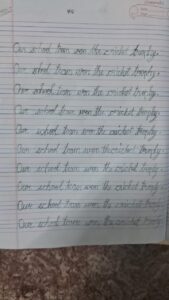 Our school team won the cricket trophy.
Our school team won the cricket trophy.
Our school team won the cricket trophy.
Our school team won the cricket trophy.
Our school team won the cricket trophy.
Our school team won the cricket trophy.
Our school team won the cricket trophy.
Our school team won the cricket trophy.
Our school team won the cricket trophy.
Our school team won the cricket trophy.